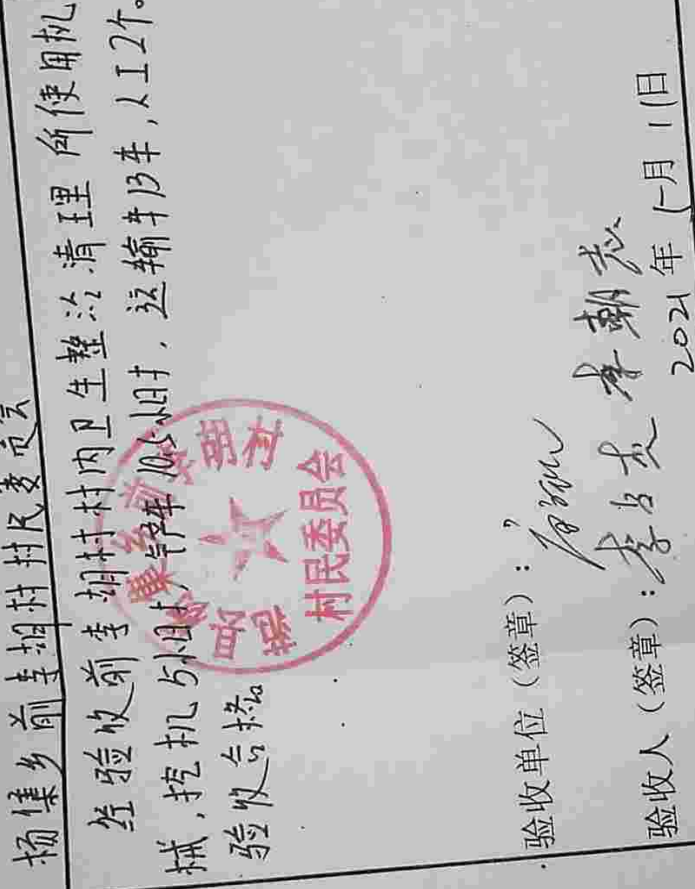 杨集乡前李胡村村民委员会
经验收前李胡村村内卫生整治清理所使用机
械,挖机5小时,铲车10.5小时,运输车13车,人工2个。
验收合格
村民委员会
验收单位(签章):
验收人(签章):李占杰 李朝志
2021年 1月 1日